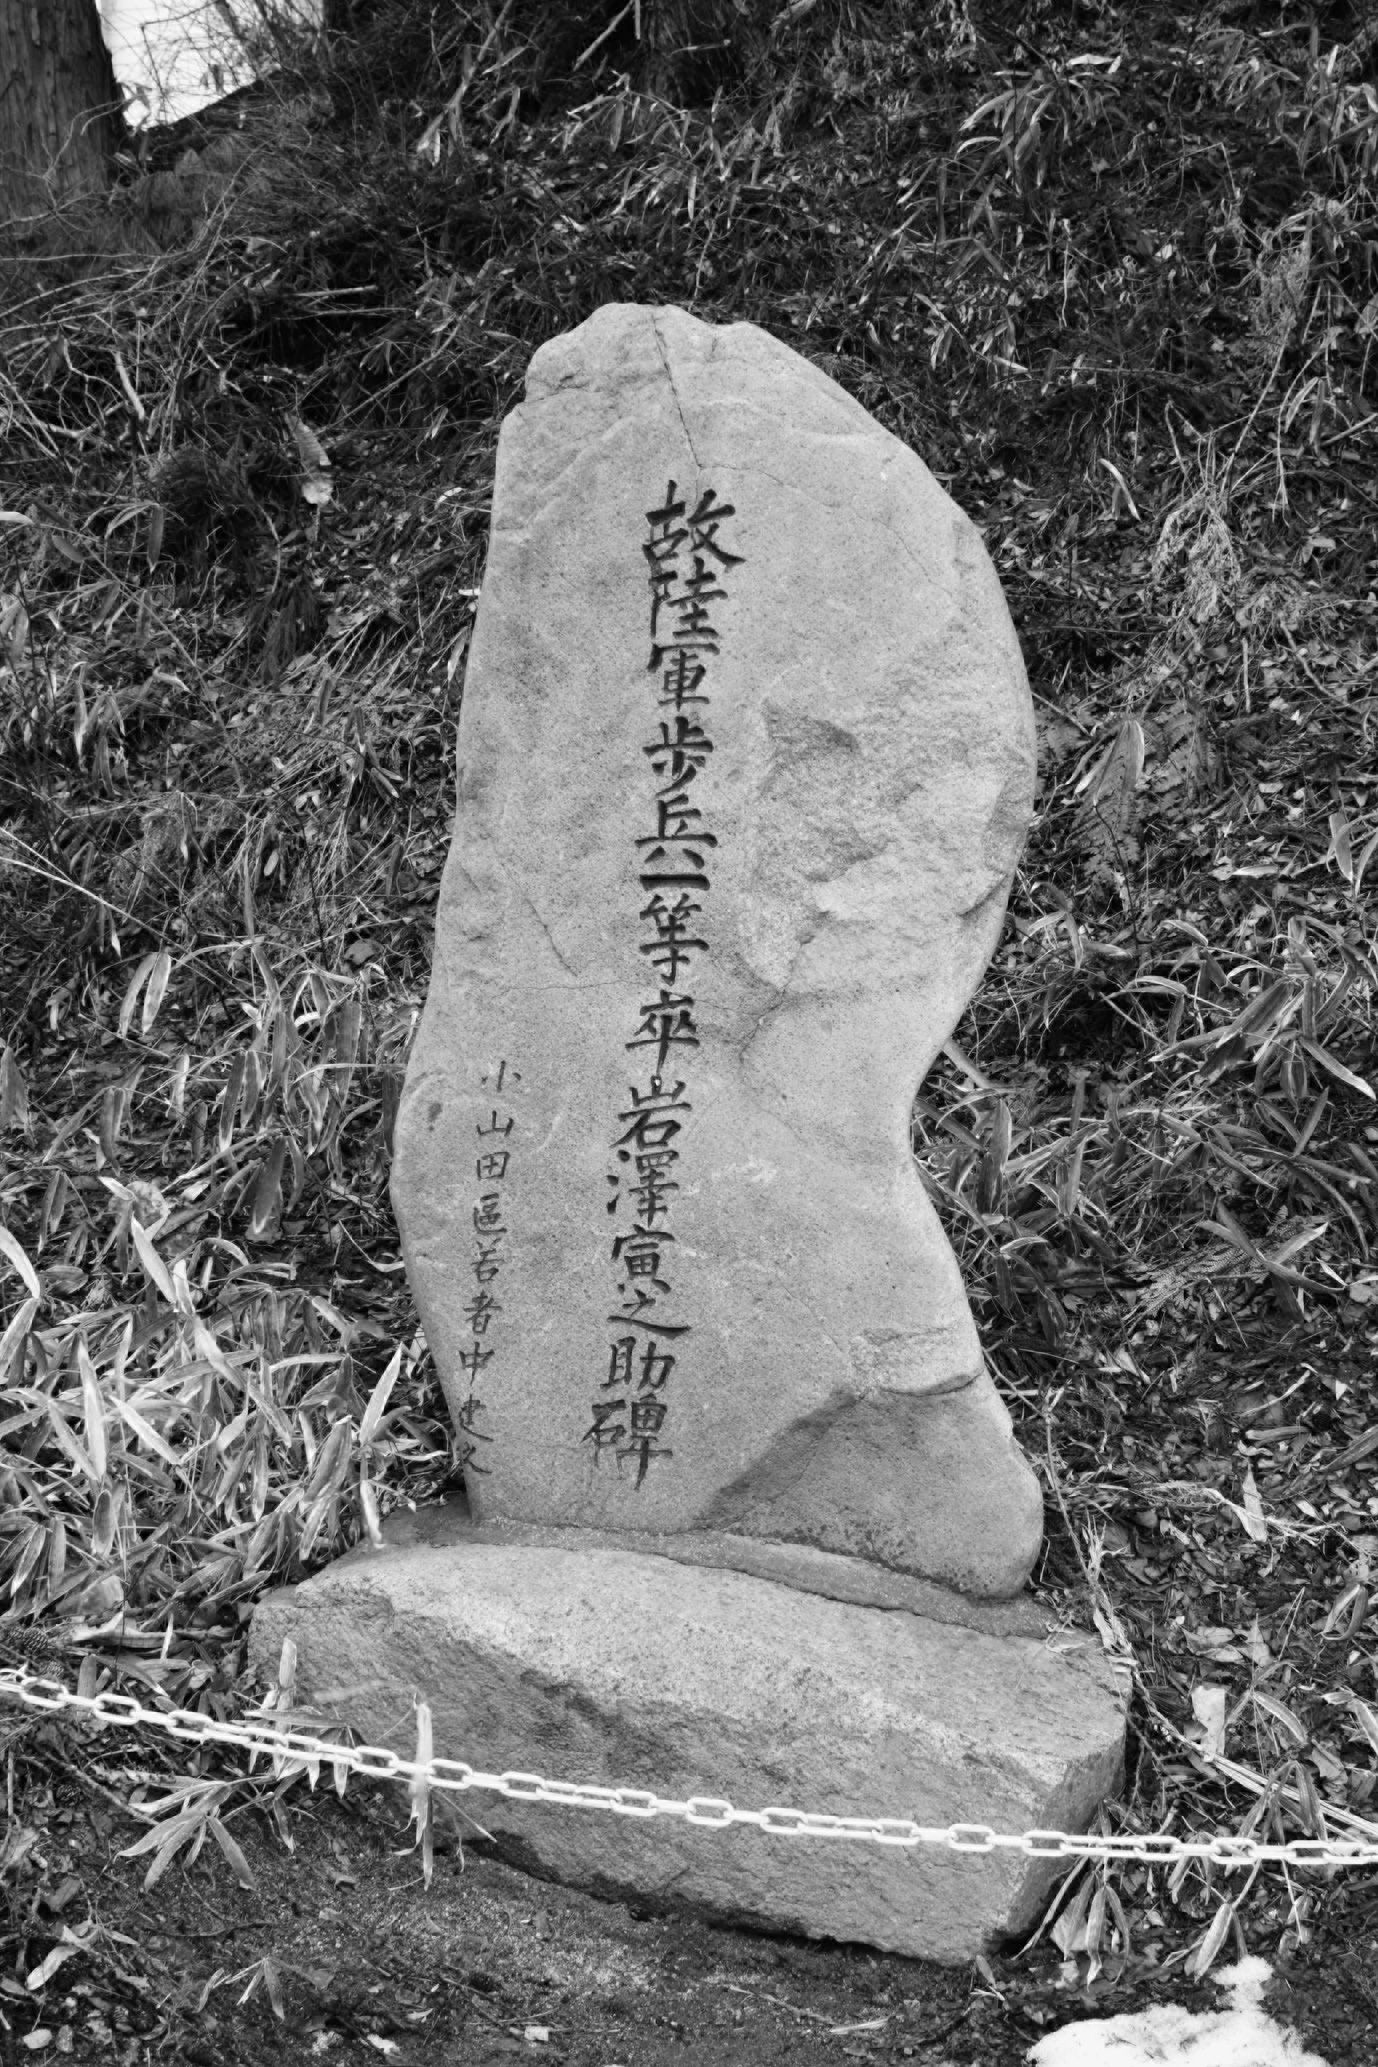 故陸軍歩兵一等卒岩澤寅之助碑
小山田區若者中建之